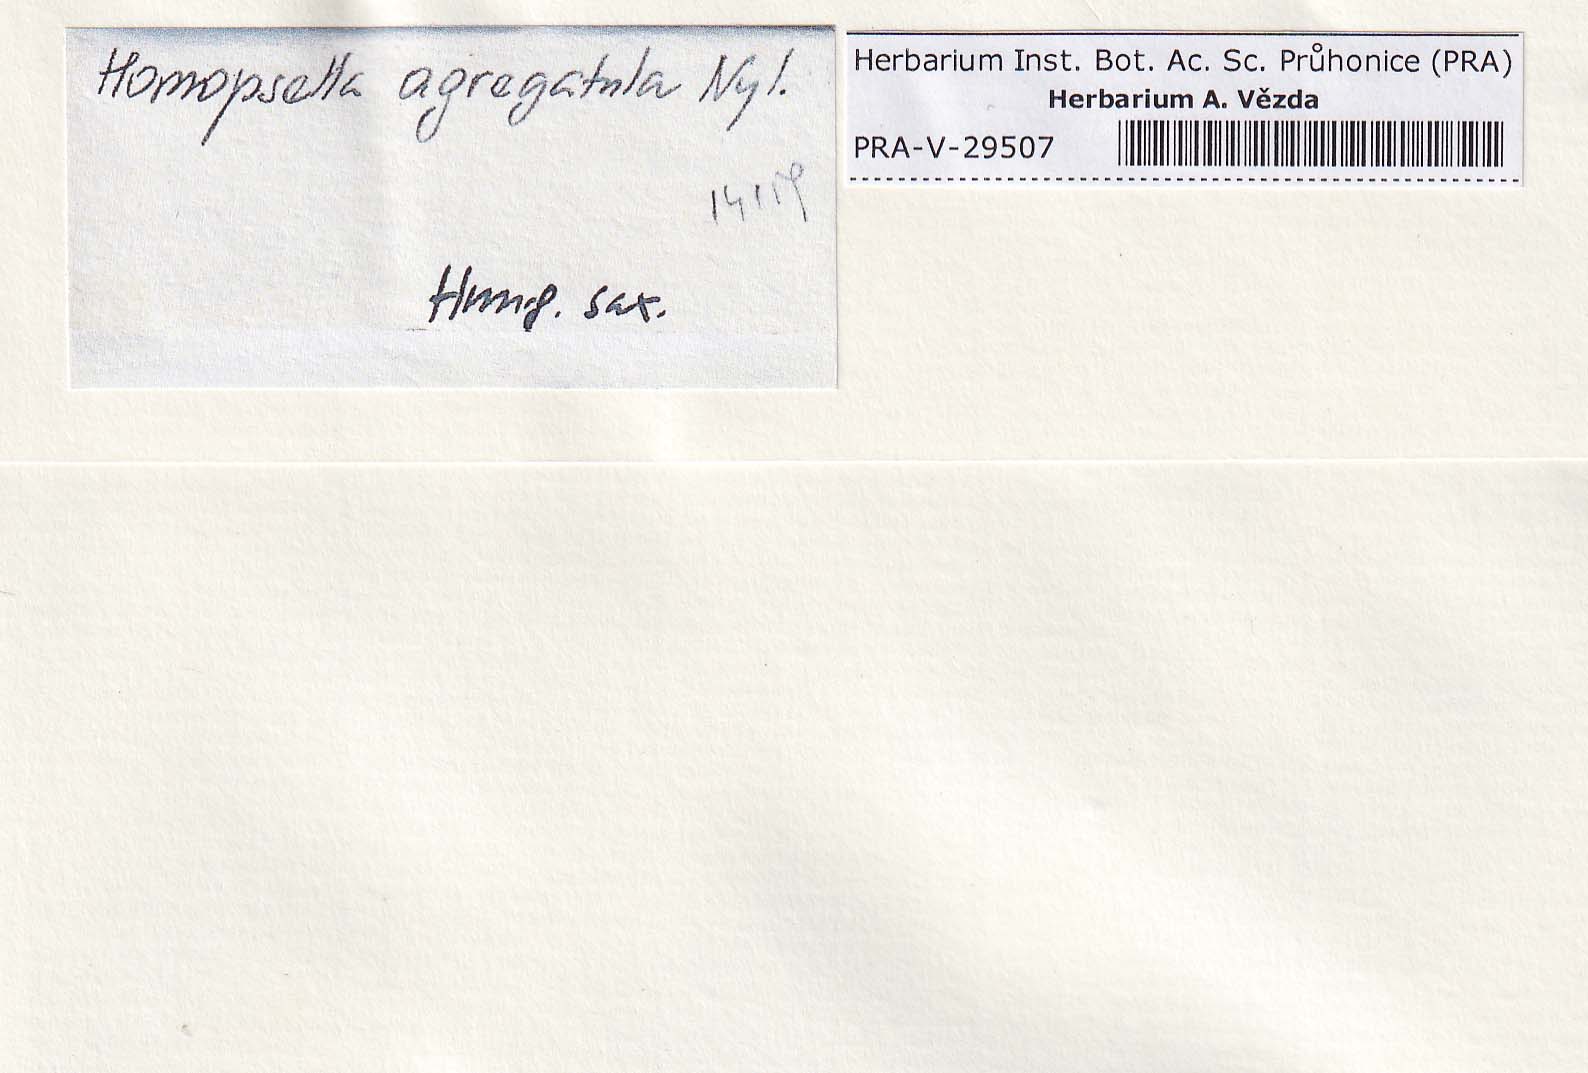 Homopsella agregatula Nyl.
Herbarium Inst. Bot. Ac. Sc. Průhonice (PRA)
Herbarium A. Vězda
PRA-V-29507
sax.